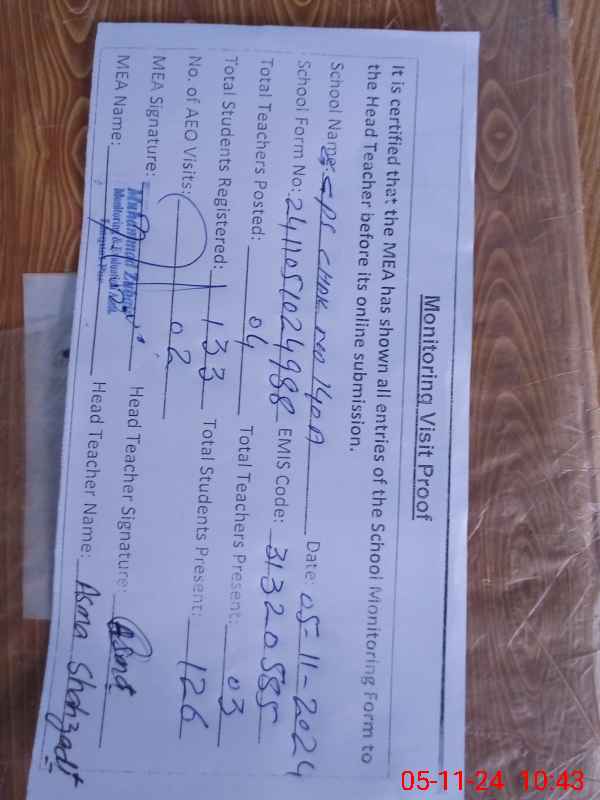 Monitoring Visit Proof
It is certified that the MEA has shown all entries of the School Monitoring Form to
the Head Teacher before its online submission.
School Name: GPS CHAK NO 140A Date: 05-11-2024
School Form No: 2411051024988 EMIS Code: 31320585
Total Teachers Posted: 04 Total Teachers Present: 03
Total Students Registered: 133 Total Students Present: 126
No. of AEO Visits: 02
MEA Signature: Head Teacher Signature: Asma
MEA Name: Muhammad Head Teacher Name: Asma Shahzadi
Monitoring &
05-11-24 10:43